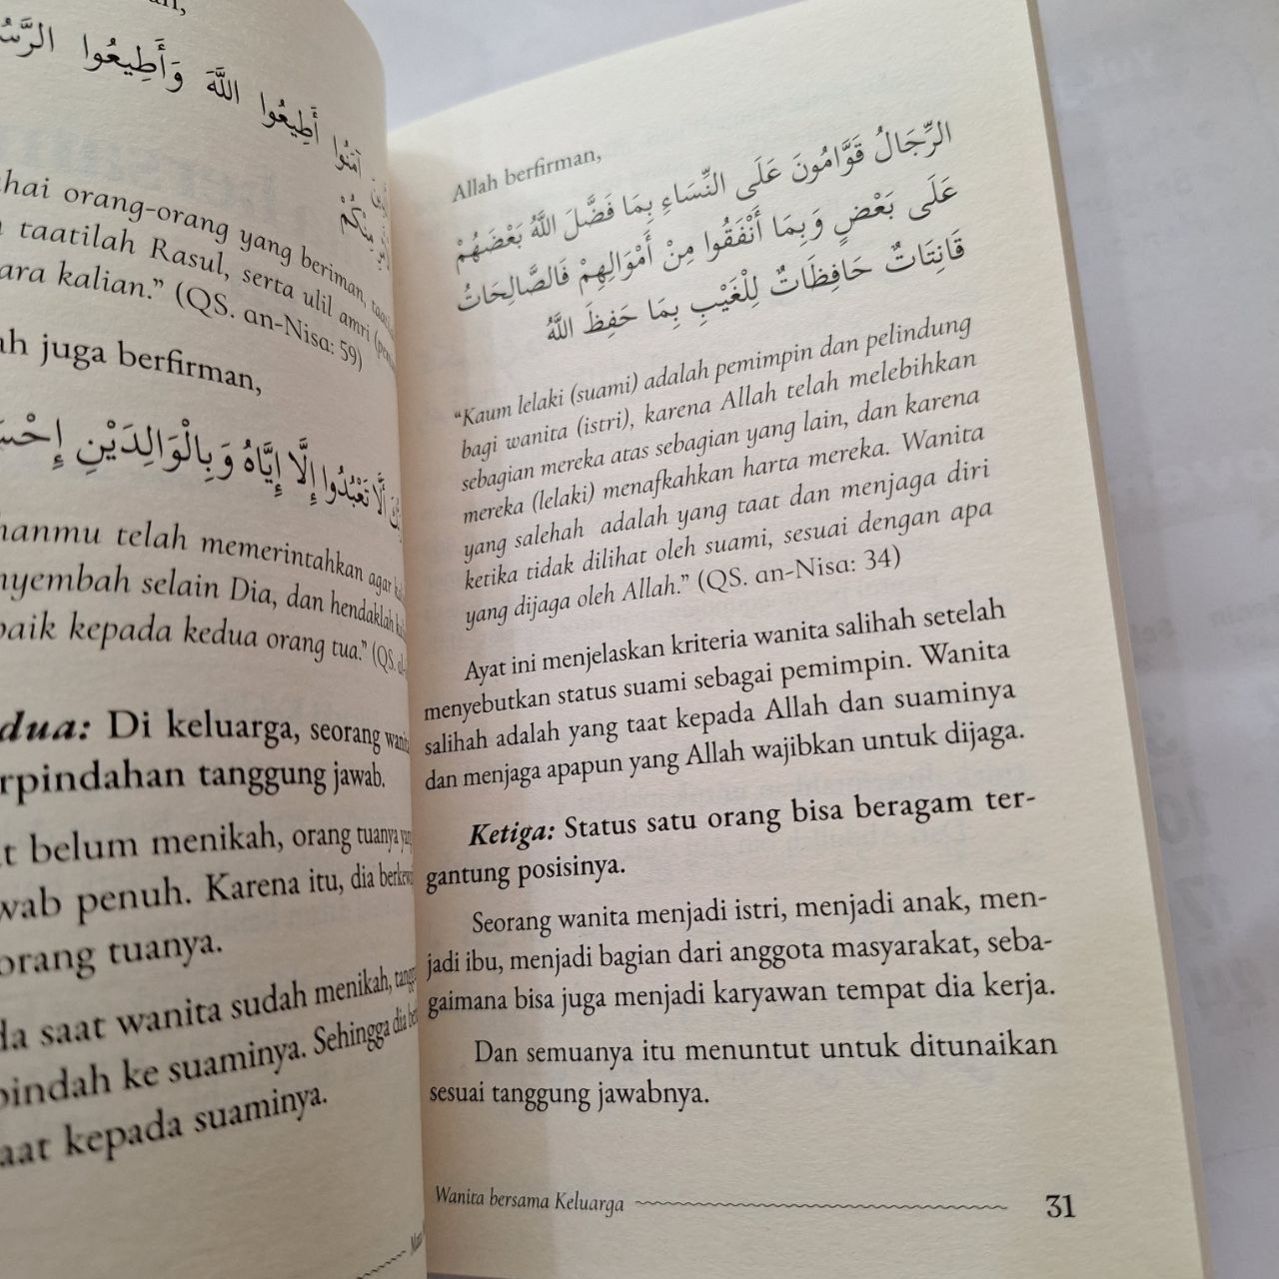 اللَّهَ وَأَطِيعُوا
آمَنُوا أَطِيعُوا
مِنْكُمْ
orang-orang yang beriman,
taatilah Rasul, serta ulil amri
kalian.” (QS. an-Nisa: 59)
juga berfirman,
أَلَّا تَعْبُدُوا إِلَّا إِيَّاهُ وَبِالْوَالِدَيْنِ
telah memerintahkan agar
selain Dia, dan hendaklah
kepada kedua orang tua.” (QS.
Di keluarga, seorang
tanggung jawab.
belum menikah, orang tuanya
penuh. Karena itu, dia
orang tuanya.
saat wanita sudah menikah,
ke suaminya. Sehingga dia
kepada suaminya.
Allah berfirman,
الرِّجَالُ قَوَّامُونَ عَلَى النِّسَاءِ بِمَا فَضَّلَ اللَّهُ بَعْضَهُمْ
عَلَى بَعْضٍ وَبِمَا أَنْفَقُوا مِنْ أَمْوَالِهِمْ فَالصَّالِحَاتُ
قَانِتَاتٌ حَافِظَاتٌ لِلْغَيْبِ بِمَا حَفِظَ اللَّهُ
“Kaum lelaki (suami) adalah pemimpin dan pelindung
bagi wanita (istri), karena Allah telah melebihkan
sebagian mereka atas sebagian yang lain, dan karena
mereka (lelaki) menafkahkan harta mereka. Wanita
yang salehah adalah yang taat dan menjaga diri
ketika tidak dilihat oleh suami, sesuai dengan apa
yang dijaga oleh Allah.” (QS. an-Nisa: 34)
Ayat ini menjelaskan kriteria wanita salihah setelah
menyebutkan status suami sebagai pemimpin. Wanita
salihah adalah yang taat kepada Allah dan suaminya
dan menjaga apapun yang Allah wajibkan untuk dijaga.
Ketiga: Status satu orang bisa beragam ter-
gantung posisinya.
Seorang wanita menjadi istri, menjadi anak, men-
jadi ibu, menjadi bagian dari anggota masyarakat, seba-
gaimana bisa juga menjadi karyawan tempat dia kerja.
Dan semuanya itu menuntut untuk ditunaikan
sesuai tanggung jawabnya.
Wanita bersama Keluarga 31